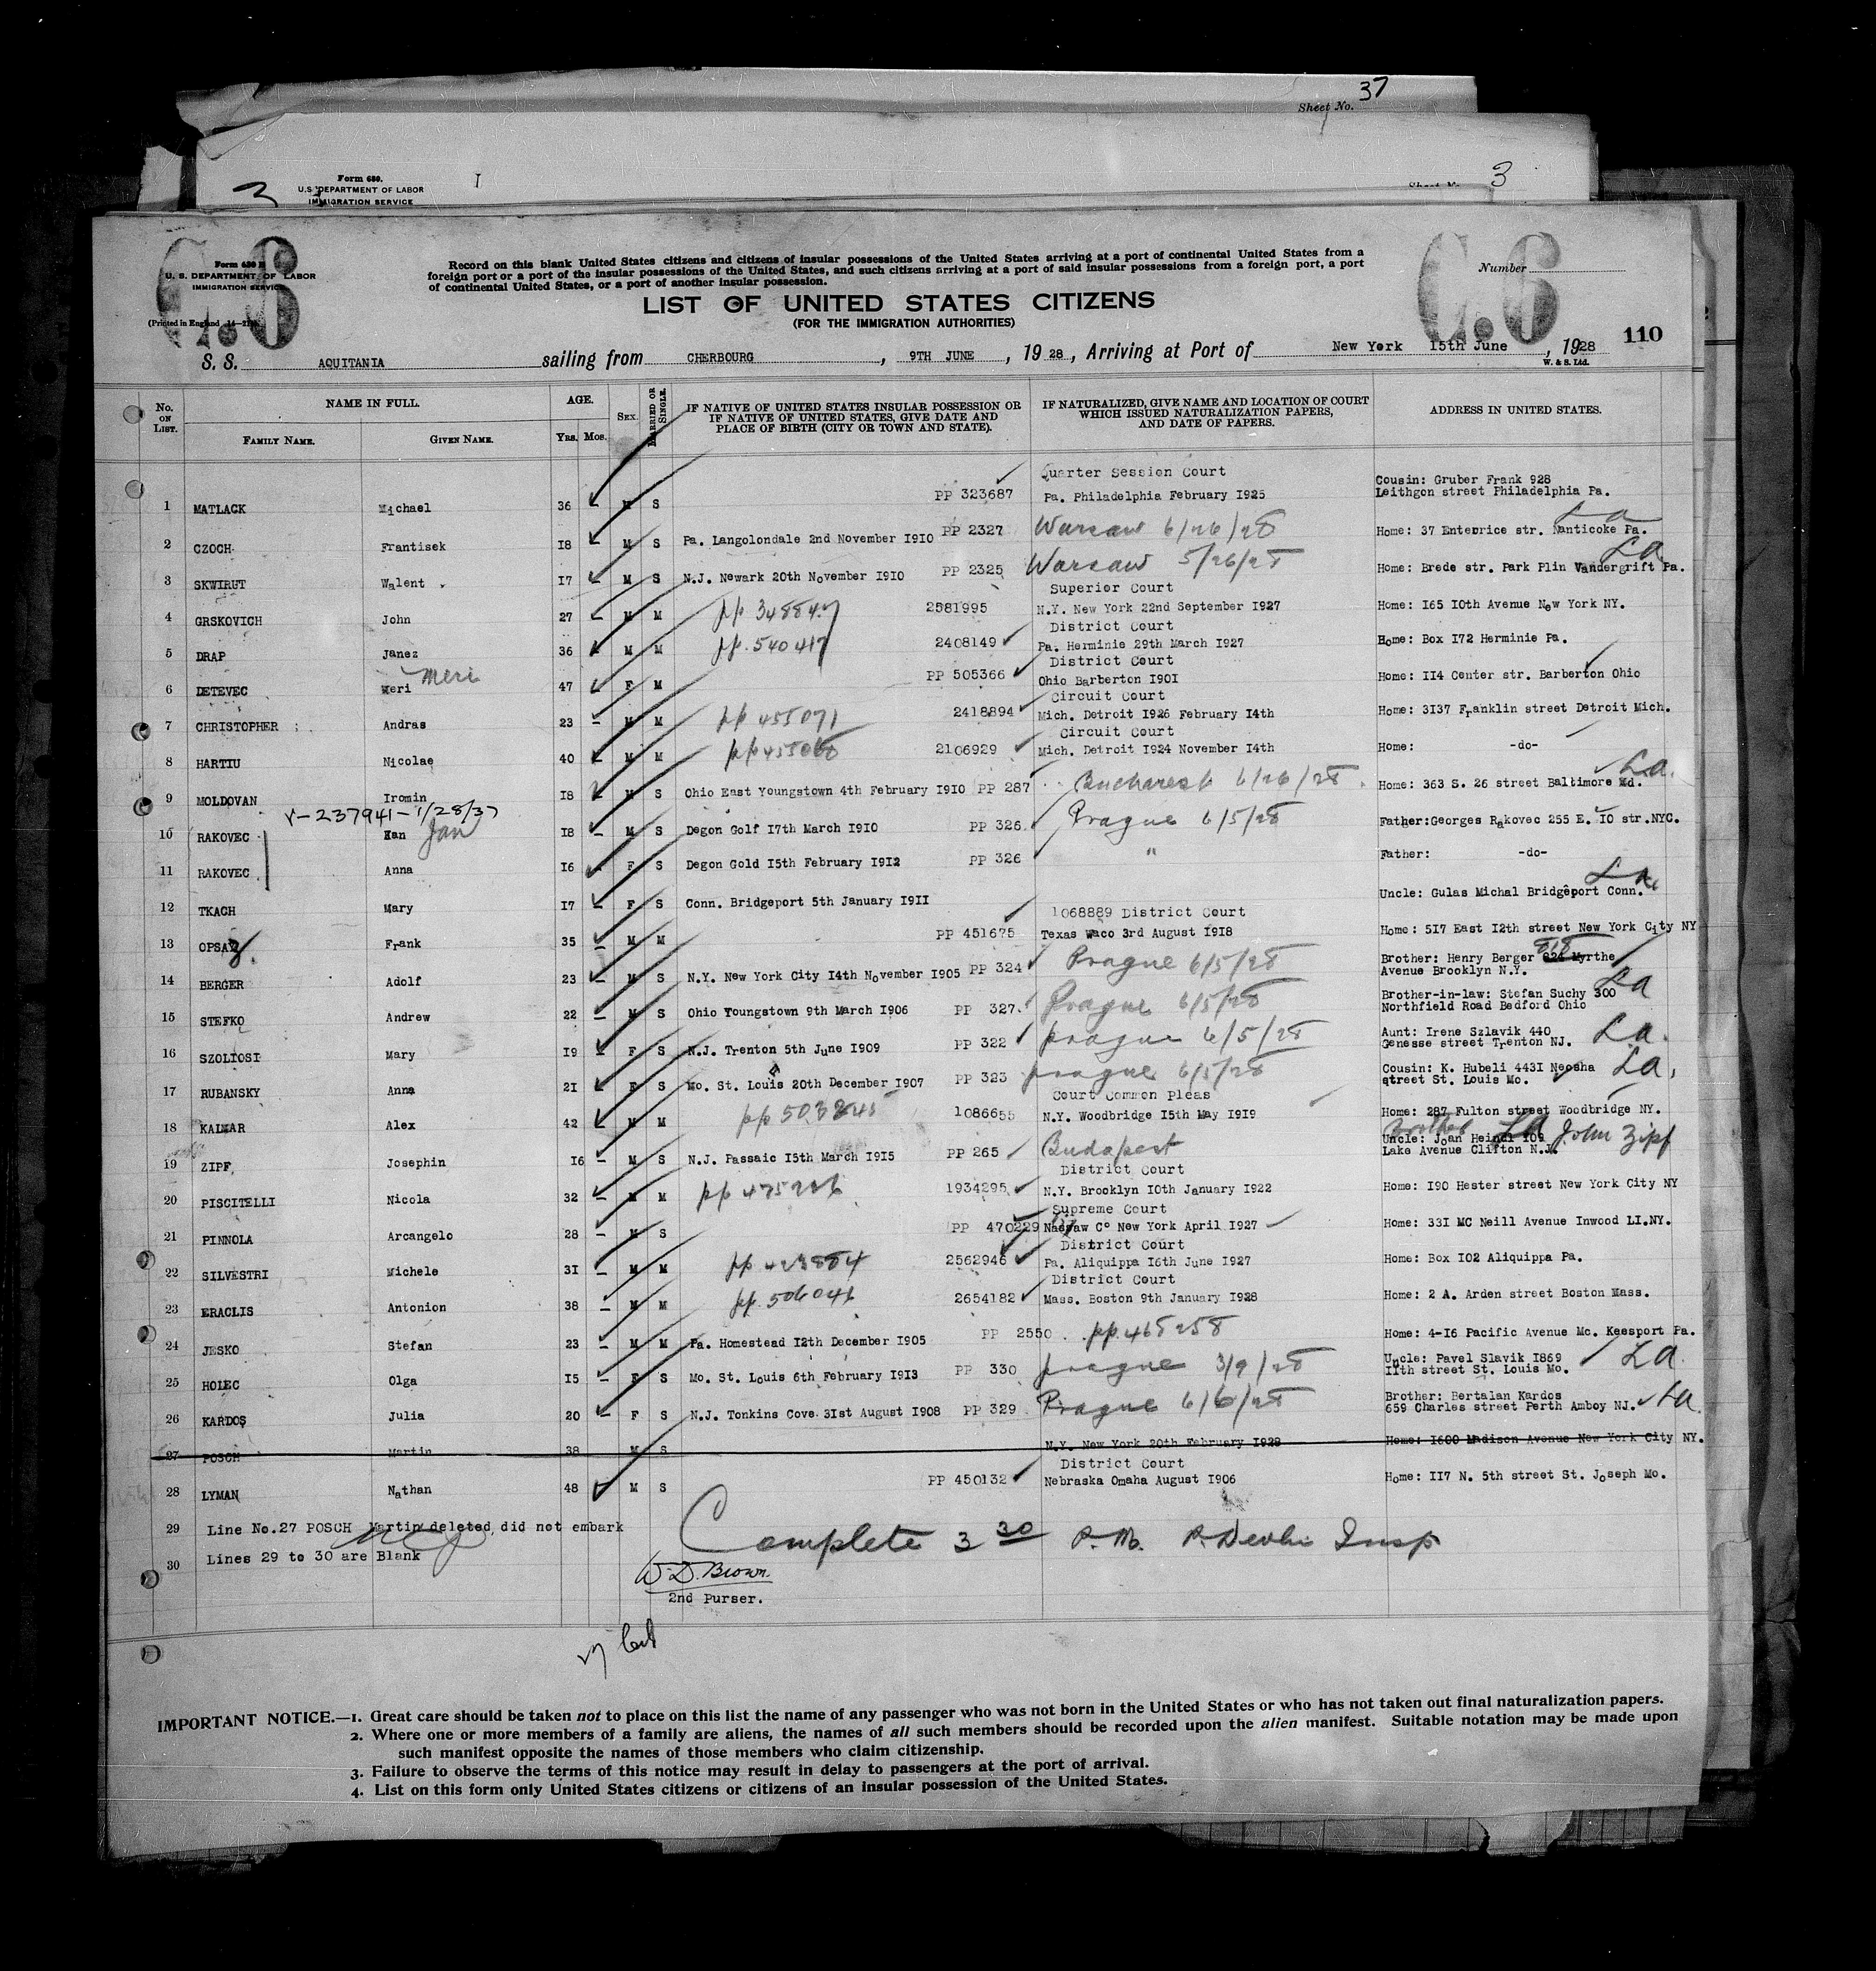 Sheet No. 37
Form 680.
U.S. DEPARTMENT OF LABOR
IMMIGRATION SERVICE
3
I
3
C.6
C.6
Form 630 B
U. S. DEPARTMENT OF LABOR
IMMIGRATION SERVICE
(Printed in England
Record on this blank United States citizens and citizens of insular possessions of the United States arriving at a port of continental United States from a
foreign port or a port of the insular possessions of the United States, and such citizens arriving at a port of said insular possessions from a foreign port, a port
of continental United States, or a port of another insular possession.
Number
LIST OF UNITED STATES CITIZENS
(FOR THE IMMIGRATION AUTHORITIES)
110
S. S. AQUITANIA sailing from CHERBOURG, 9TH JUNE, 1928, Arriving at Port of New York 15th June, 1928
W. & S. Ltd.
No. ON LIST. NAME IN FULL. AGE. SEX. MARRIED OR SINGLE. IF NATIVE OF UNITED STATES INSULAR POSSESSION OR IF NATIVE OF UNITED STATES, GIVE DATE AND PLACE OF BIRTH (CITY OR TOWN AND STATE). IF NATURALIZED, GIVE NAME AND LOCATION OF COURT WHICH ISSUED NATURALIZATION PAPERS, AND DATE OF PAPERS. ADDRESS IN UNITED STATES.
FAMILY NAME. GIVEN NAME. YRS. MOS.
Quarter Session Court Cousin: Gruber Frank 928
1 MATLACK Michael 36 - M S PP 323687 Pa. Philadelphia February 1925 Leithgon street Philadelphia Pa.
2 CZOCH Frantisek 18 - M S Pa. Langolondale 2nd November 1910 PP 2327 Warsaw 6/26/28 Home: 37 Enterprice str. Nanticoke Pa. La
3 SKWIRUT Walent 17 - M S N.J. Newark 20th November 1910 PP 2325 Warsaw 5/26/28 Home: Brede str. Park Plin Vandergrift Pa. La
Superior Court
4 GRSKOVICH John 27 - M M pp 348847 2581995 N.Y. New York 22nd September 1927 Home: 165 10th Avenue New York NY.
District Court
5 DRAP Janez 36 - M M pp. 540417 2408149 Pa. Herminie 29th March 1927 Home: Box 172 Herminie Pa.
District Court
6 DETEVEC Meri Meri 47 F M PP 505366 Ohio Barberton 1901 Home: 114 Center str. Barberton Ohio
Circuit Court
7 CHRISTOPHER Andras 23 - M M pp 455071 2418894 Mich. Detroit 1926 February 14th Home: 3137 Franklin street Detroit Mich.
Circuit Court
8 HARTIU Nicolae 40 M M 2106929 Mich. Detroit 1924 November 14th Home: -do-
9 MOLDOVAN Iromin 18 M S Ohio East Youngstown 4th February 1910 PP 287 Bucharest 6/26/28 Home: 363 S. 26 street Baltimore Md. La.
V-237941-1/28/37
10 RAKOVEC Han Jan 18 - M S Degon Golf 17th March 1910 PP 326 Prague 6/5/28 Father: Georges Rakovec 255 E. 10 str. NYC.
11 RAKOVEC Anna 16 F S Degon Gold 15th February 1912 PP 326 " Father: -do-
12 TKACH Mary 17 - F S Conn. Bridgeport 5th January 1911 Uncle: Gulas Michal Bridgeport Conn. La
1068889 District Court
13 OPSAZ Frank 35 - M M PP 451675 Texas Waco 3rd August 1918 Home: 517 East 12th street New York City NY
14 BERGER Adolf 23 - M S N.Y. New York City 14th November 1905 PP 324 Prague 6/5/28 Brother: Henry Berger 824 Myrthe
Avenue Brooklyn N.Y.
15 STEFKO Andrew 22 - M S Ohio Youngstown 9th March 1906 PP 327 Prague 6/5/28 Brother-in-law: Stefan Suchy 300 La
Northfield Road Bedford Ohio
16 SZOLTOSI Mary 19 - F S N.J. Trenton 5th June 1909 PP 322 prague 6/5/28 Aunt: Irene Szlavik 440 La.
Genesse street Trenton NJ.
17 RUBANSKY Anna 21 - F S Mo. St. Louis 20th December 1907 PP 323 prague 6/5/28 Cousin: K. Hubeli 4431 Neosha La.
street St. Louis Mo.
Court Common Pleas
18 KALMAR Alex 42 - M M 1086655 N.Y. Woodbridge 15th May 1919 Home: 287 Fulton street Woodbridge NY.
19 ZIPF Josephin 16 - M S N.J. Passaic 15th March 1915 PP 265 Budapest Brother Uncle: Joan Heindl 109 La John Zipf
Lake Avenue Clifton N.J.
District Court
20 PISCITELLI Nicola 32 - M M 1934295 N.Y. Brooklyn 10th January 1922 Home: 190 Hester street New York City NY
Supreme Court
21 PINNOLA Arcangelo 28 - M S PP 470229 Nassaw Co New York April 1927 Home: 331 MC Neill Avenue Inwood LI.NY.
District Court
22 SILVESTRI Michele 31 - M M pp 423884 2562946 Pa. Aliquippa 16th June 1927 Home: Box 102 Aliquippa Pa.
District Court
23 ERACLIS Antonion 38 - M M pp. 506046 2654182 Mass. Boston 9th January 1928 Home: 2 A. Arden street Boston Mass.
24 JESKO Stefan 23 - M M Pa. Homestead 12th December 1905 PP 2550 pp. 468258 Home: 4-16 Pacific Avenue Mc. Keesport Pa.
25 HOLEC Olga 15 - F S Mo. St. Louis 6th February 1913 PP 330 prague 3/9/28 Uncle: Pavel Slavik 1869 La.
11th street St. Louis Mo.
26 KARDOS Julia 20 - F S N.J. Tonkins Cove 31st August 1908 PP 329 Prague 6/6/28 Brother: Bertalan Kardos
659 Charles street Perth Amboy NJ. La.
27 POSCH Martin 38 M S N.Y. New York 20th February 1928 Home: 1600 Madison Avenue New York City NY.
District Court
28 LYMAN Nathan 48 - M S PP 450132 Nebraska Omaha August 1906 Home: 117 N. 5th street St. Joseph Mo.
29 Line No.27 POSCH Martin deleted did not embark
Complete 3 30 P.M. P. Devlin Insp
30 Lines 29 to 30 are Blank
W.D. Brown.
2nd Purser.
IMPORTANT NOTICE.—1. Great care should be taken not to place on this list the name of any passenger who was not born in the United States or who has not taken out final naturalization papers.
2. Where one or more members of a family are aliens, the names of all such members should be recorded upon the alien manifest. Suitable notation may be made upon
such manifest opposite the names of those members who claim citizenship.
3. Failure to observe the terms of this notice may result in delay to passengers at the port of arrival.
4. List on this form only United States citizens or citizens of an insular possession of the United States.